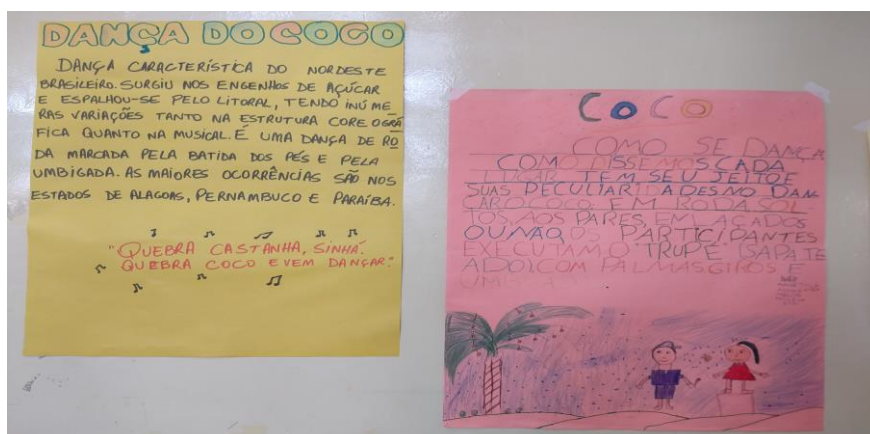 DANÇA DO COCO
DANÇA CARACTERÍSTICA DO NORDESTE
BRASILEIRO. SURGIU NOS ENGENHOS DE AÇÚCAR
E ESPALHOU-SE PELO LITORAL, TENDO INÚME
RAS VARIAÇÕES TANTO NA ESTRUTURA COREOGRÁ
FICA QUANTO NA MUSICAL. É UMA DANÇA DE RO
DA MARCADA PELA BATIDA DOS PÉS E PELA
UMBIGADA. AS MAIORES OCORRÊNCIAS SÃO NOS
ESTADOS DE ALAGOAS, PERNAMBUCO E PARAÍBA.
"QUEBRA CASTANHA, SINHÁ.
QUEBRA COCO E VEM DANÇAR."
COCO
COMO SE DANÇA
COMO DISSEMOS CADA
LUGAR TEM SEU JEITO E
SUAS PECULIARIDADES NO DAN-
ÇAR O COCO. EM RODA, SOL
TOS, AOS PARES, ENLAÇADOS
OU NÃO, OS PARTICIPANTES
EXECUTAM O TRUPÉ (SAPATE
ADO) COM PALMAS GIROS E